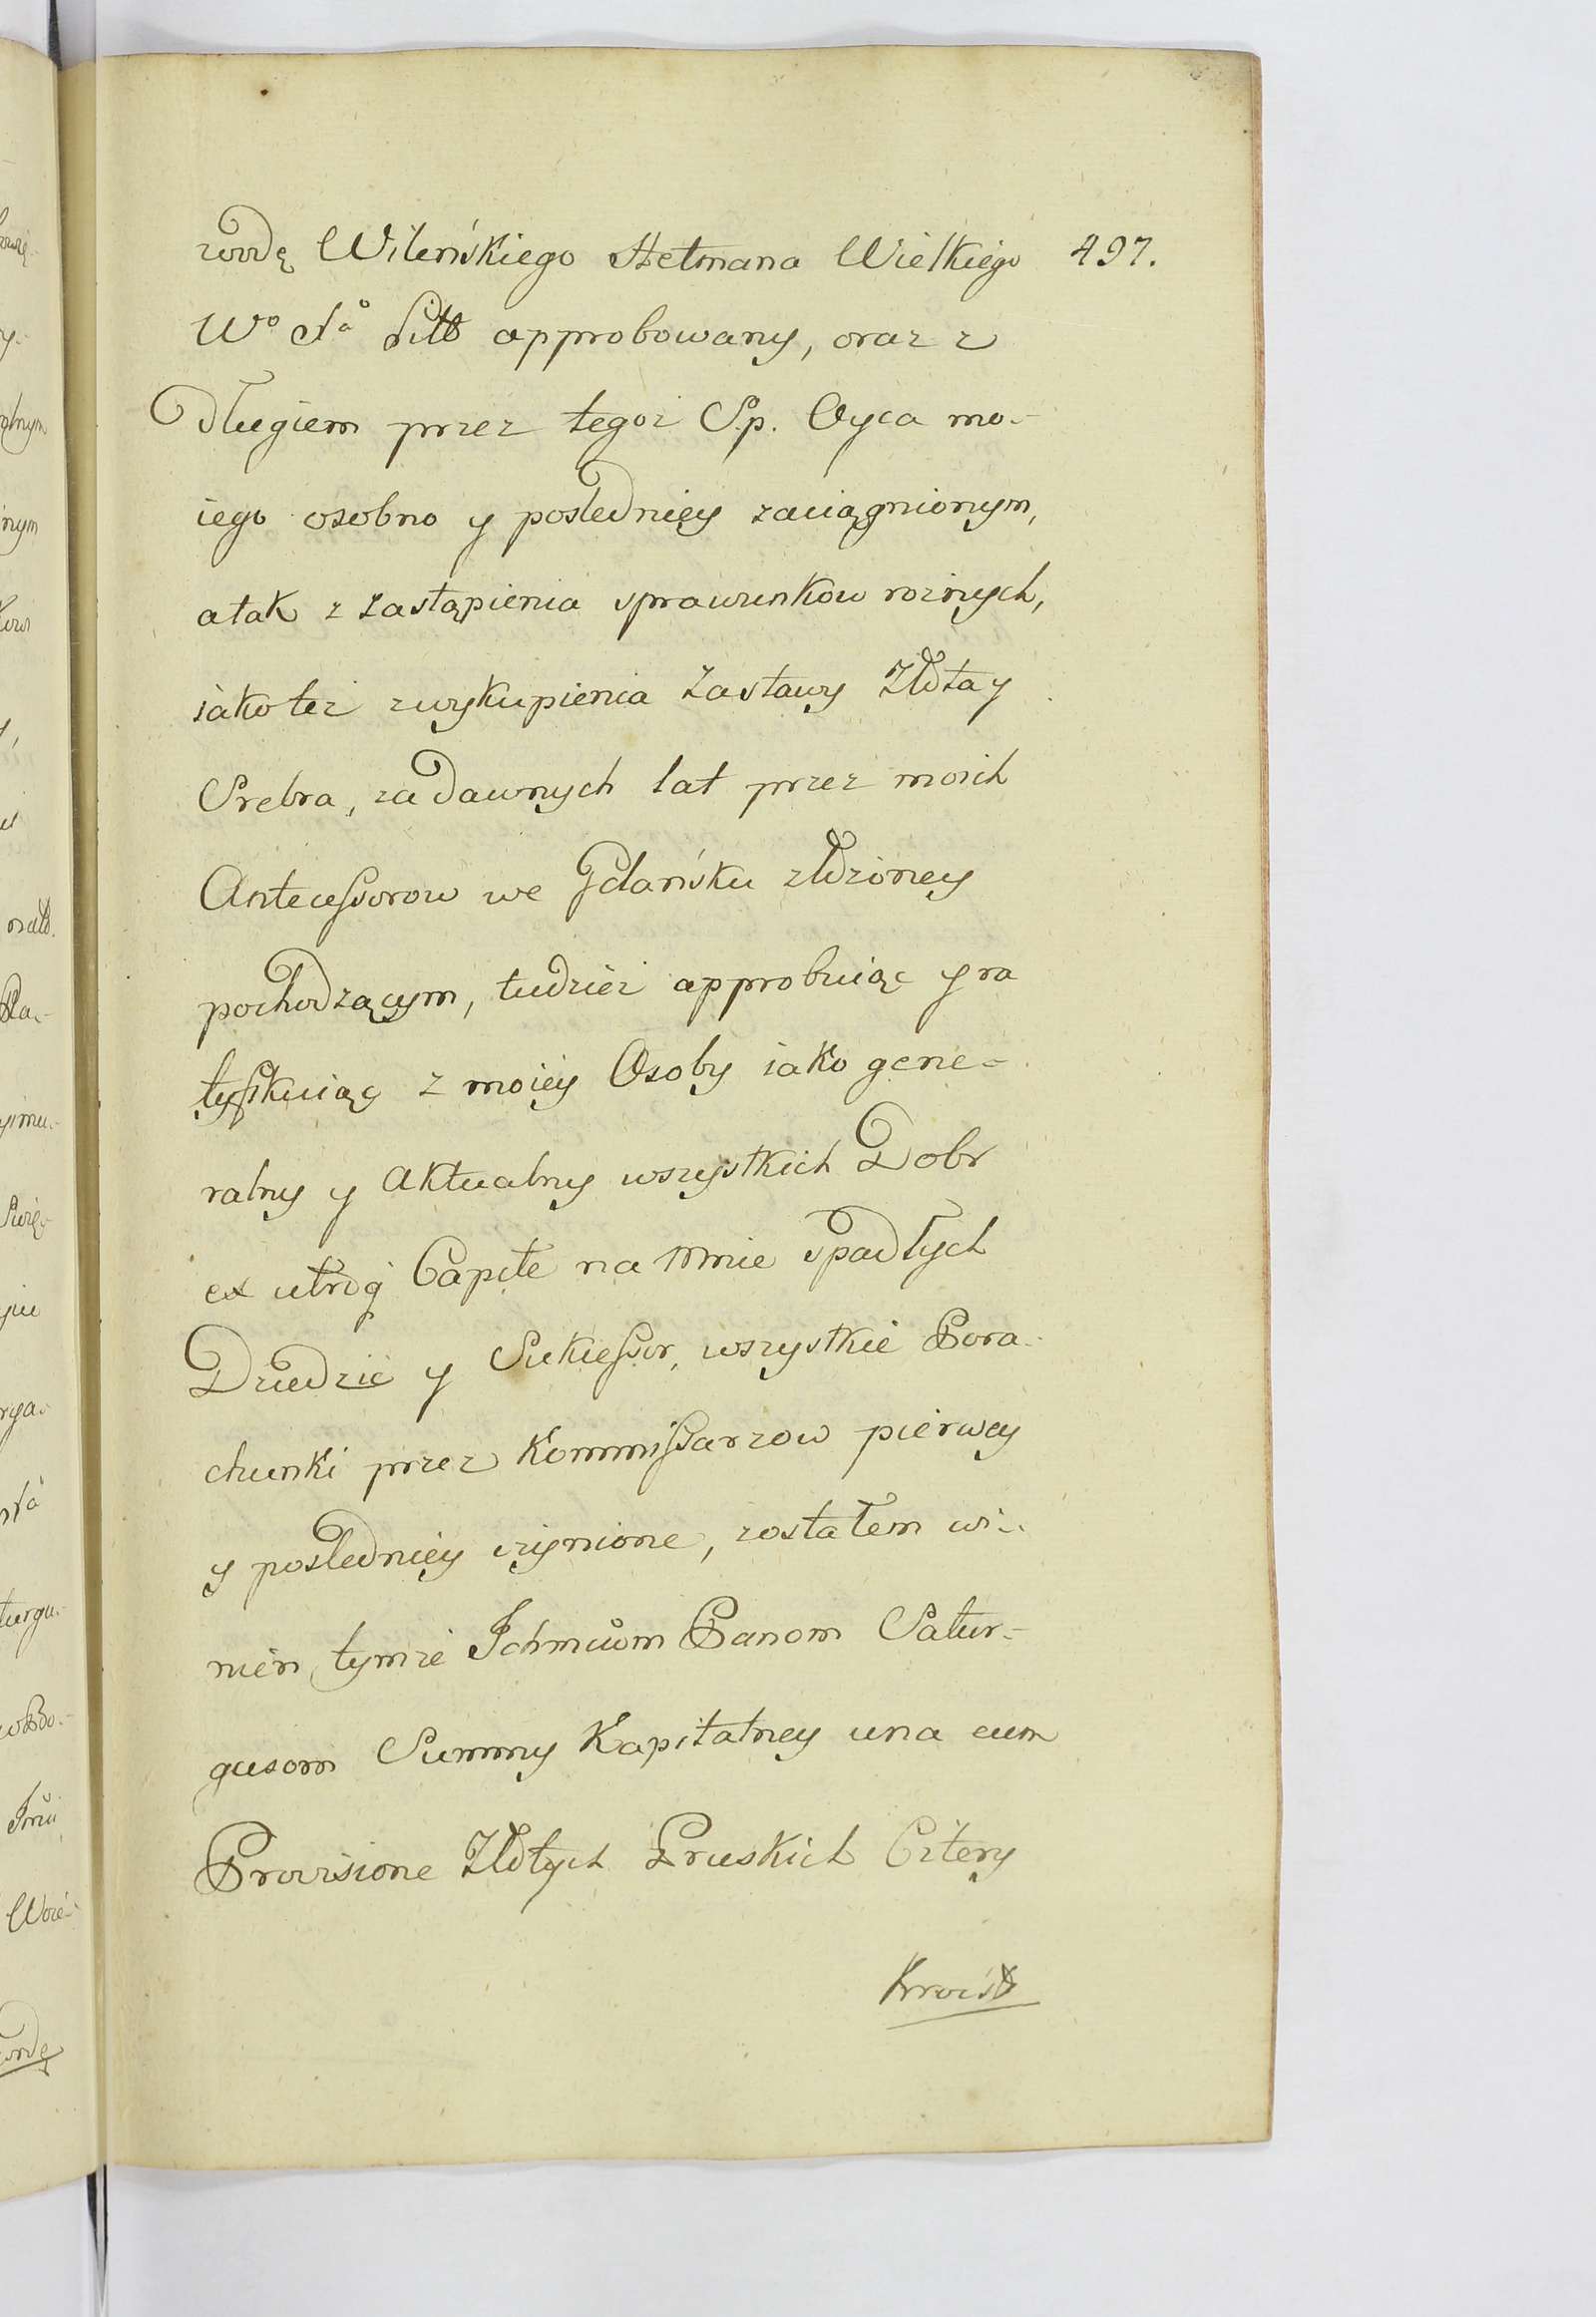 wodę Wileńskiego Hetmana Wielkiego 497.
Wº Xª Litt approbowany, oraz z
Długiem przez tegoz S.p. Oyca mo-
iego osobno y posledniey zaciągnionym,
a tak z zastąpienia sprawunkow roznych,
iako tez z wykupienia Zastawy Złota y
Srebra, za dawnych lat przez moich
Antecessorow we Gdańsku złozoney
pochodzącym, tudziez approbuiąc y ra
tyfikuiąc z moiey Osoby iako gene-
ralny y Aktualny wszystkich Dobr
ex utroq Capite na Mnie Spadłych
Dziedzic y Sukiessor, wszystkie Pora-
chunki przez Kommissarzow pierwey
y posledniey czynione, zostałem wi-
nien tymze Ichmciom Panom Satur-
gusom Summy Kapitalney una cum
Provisione Złotych Pruskich Cztery
Kroć Sto